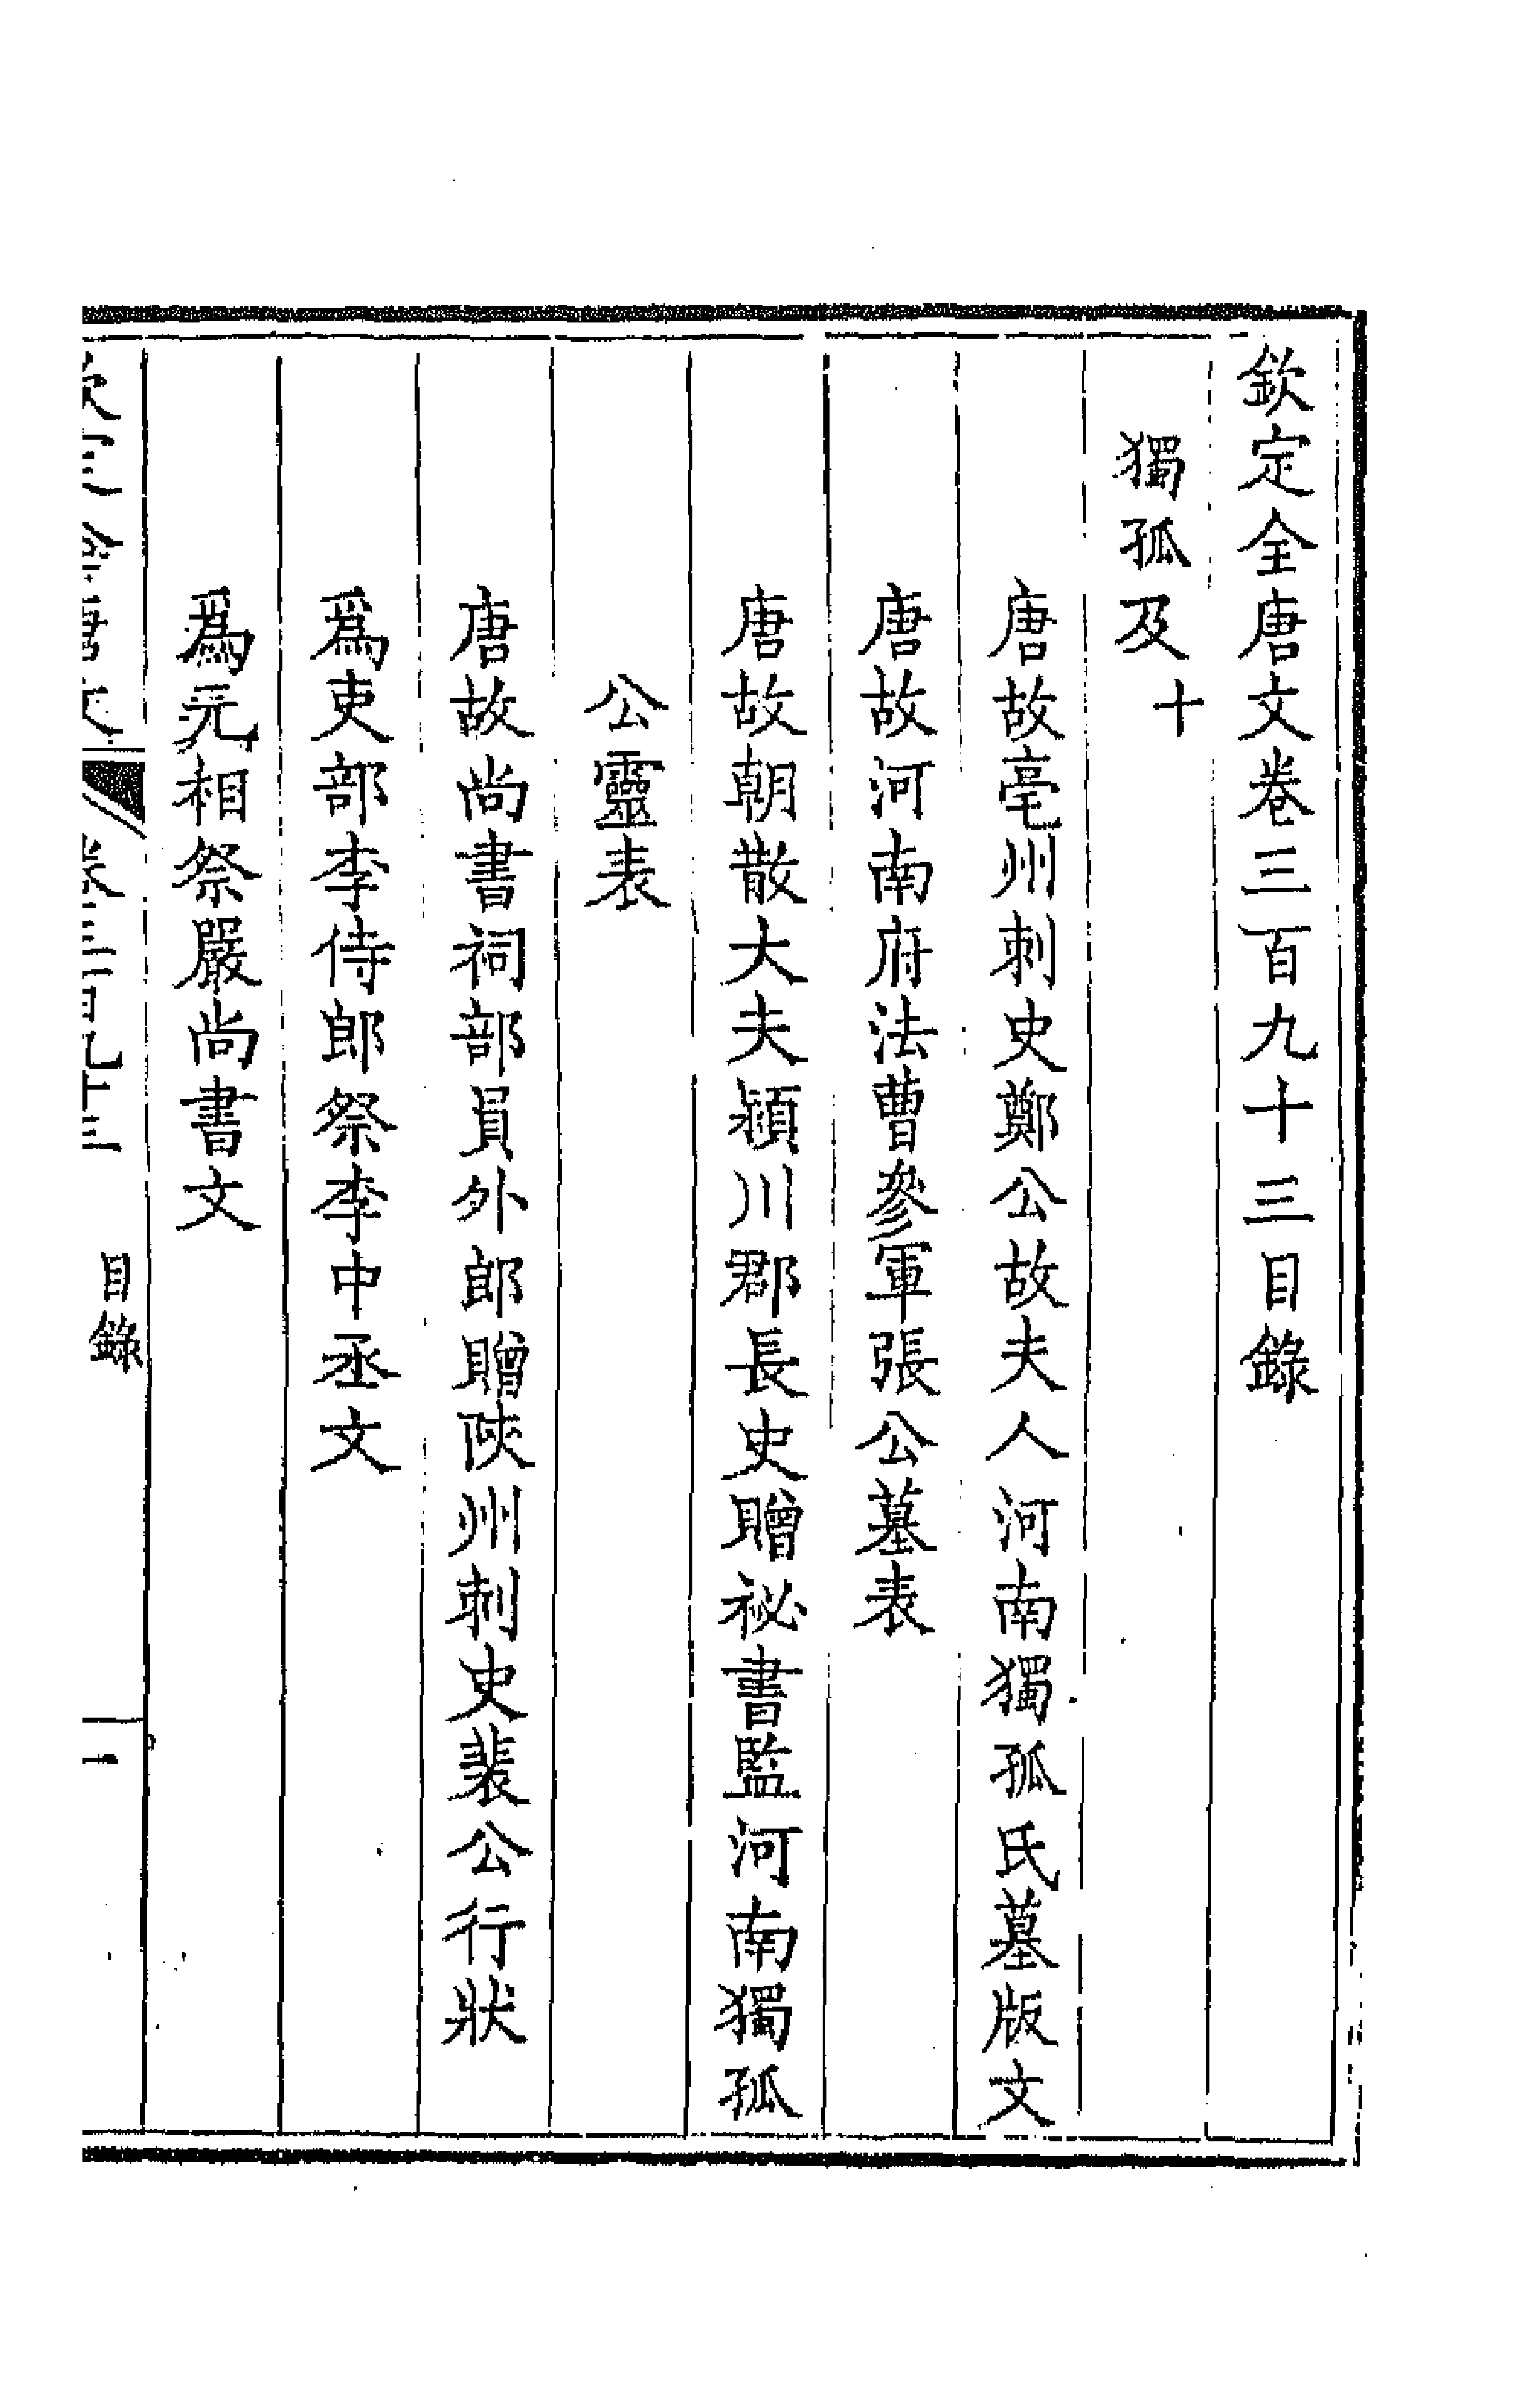 欽定全唐文卷三百九十三目錄
獨孤及十
唐故亳州刺史鄭公故夫人河南獨孤氏墓版文
唐故河南府法曹參軍張公墓表
唐故朝散大夫潁川郡長史贈祕書監河南獨孤
公靈表
唐故尚書祠部員外郎贈陝州刺史裴公行狀
爲吏部李侍郎祭李中丞文
爲元相祭嚴尚書文
卷三百九十三 目錄 一